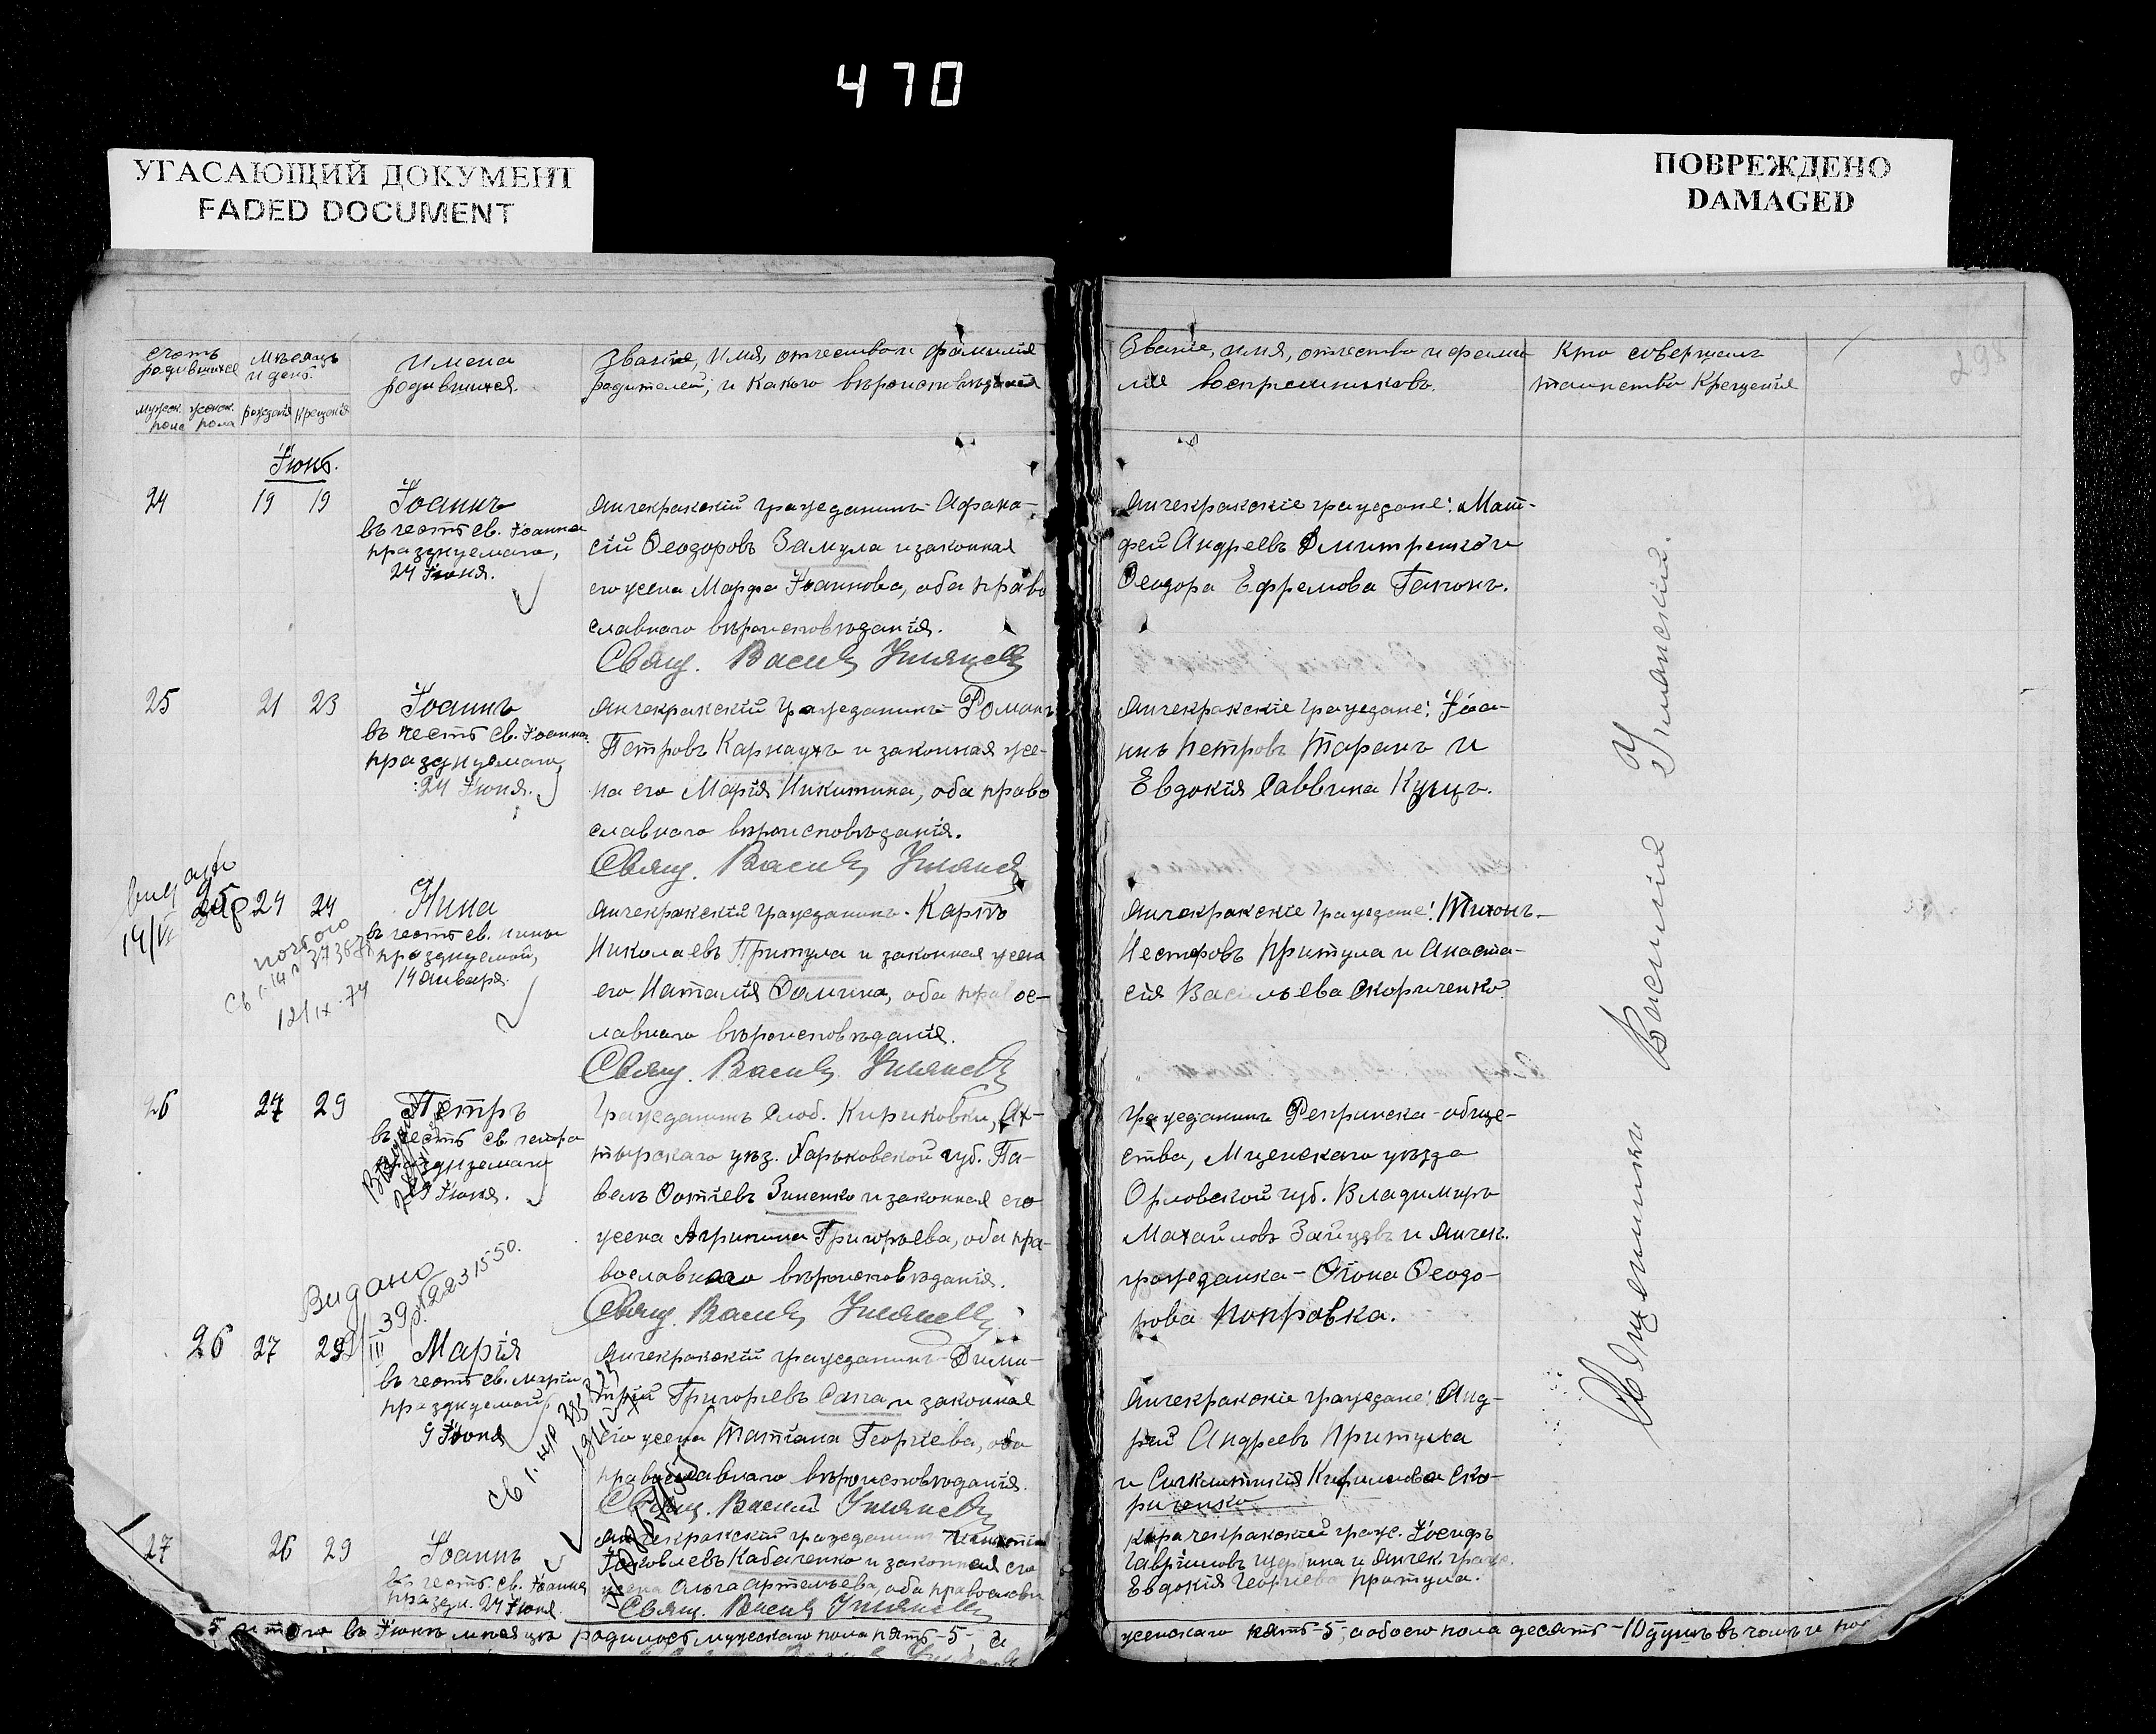 470
УГАСАЮЩИЙ ДОКУМЕНТ
FADED DOCUMENT
ПОВРЕЖДЕНО
DAMAGED
Счотъ родившихся
Мѣсяцъ и день.
Имена родившихся.
Званіе, имя, отчество и фамилія
родителей, и какого вѣроисповѣданія
мужск. пола
женск. пола
рожденія
крещенія
Званіе, имя, отчество и фами-
лія воспріемниковъ.
Кто совершалъ
таинство крещенія
29
Іюнь.
24 19 19
Іоаннъ
въ честь св. Іоанна
празднуемаго,
24 Іюня.
Янчекракскій гражданинъ Афана-
сій Ѳеодоровъ Замула и законная
его жена Марфа Іоаннова, оба право
славнаго вѣроисповѣданія.
Свящ. Василій
Янчекракскіе граждане: Мат-
фей Андреевъ Дмитренко и
Ѳеодора Ефремова Гапонъ.
25 21 23
Іоаннъ
въ честь св. Іоанна
празднуемаго,
24 Іюня.
Янчекракскій гражданинъ Романъ
Петровъ Карнаухъ и законная же-
на его Марія Никитина, оба право
славнаго вѣроисповѣданія.
Свящ. Василій
Янчекракскіе граждане: Іоа-
ннъ Петровъ Таранъ и
Евдокія Саввина Куцъ.
25 24 24
Нина
въ честь св. Нины
празднуемой,
14 Января.
14/VI
12/IX-74
Янчекракскій гражданинъ Карпъ
Николаевъ Притула и законная жена
его Наталія Ѳомина, оба правос-
лавнаго вѣроисповѣданія.
Свящ. Василій
Янчекракскіе граждане: Тихонъ
Несторовъ Притула и Анаста-
сія Васильева Скориченко.
26 27 29
Петръ
въ честь св. Петра
празднуемаго
29 Іюня.
Гражданинъ слоб. Кириковки, Ах-
тырскаго уѣз. Харьковской губ. Па-
велъ Фотіевъ Зиненко и законная его
жена Агрипина Григорьева, оба пра-
вославнаго вѣроисповѣданія.
Свящ. Василій
Гражданинъ общe-
ства, Мценскаго уѣзда
Орловской губ. Владимиръ
Михайловъ Зайцевъ и Янчек.
гражданка Ѳеодо-
рова Поправка.
Видано
39р. 2231550.
26 27 29
Марія
въ честь св. Маріи
празднуемой
9 Іюня
Янчекракскій гражданинъ Дими-
трій Григоріевъ Сапа и законная
его жена Татіана Георгіева, оба
православнаго вѣроисповѣданія.
Свящ. Василій
Янчекракскіе граждане: Анд-
рей Андреевъ Притула
и Синклитикія Кирилова Ско-
риченко
27 26 29
Іоаннъ
въ честь св. Іоанна
праздн. 24 Іюня.
Янчекракскій гражданинъ
Іаковлевъ Кабаченко и законная его
жена Ольга Артемьева, оба православн
Свящ. Василій
Карачекракскій граж. Іосифъ
Гавріиловъ Щербина и Янчек. граж.
Евдокія Георгіева Притула.
Священникъ Василій Уманскій.
Итого въ Іюнѣ мѣсяцѣ родилось мужескаго пола пять-5, а
женскаго пять-5, а обоего пола десять-10 душъ въ чомъ и под